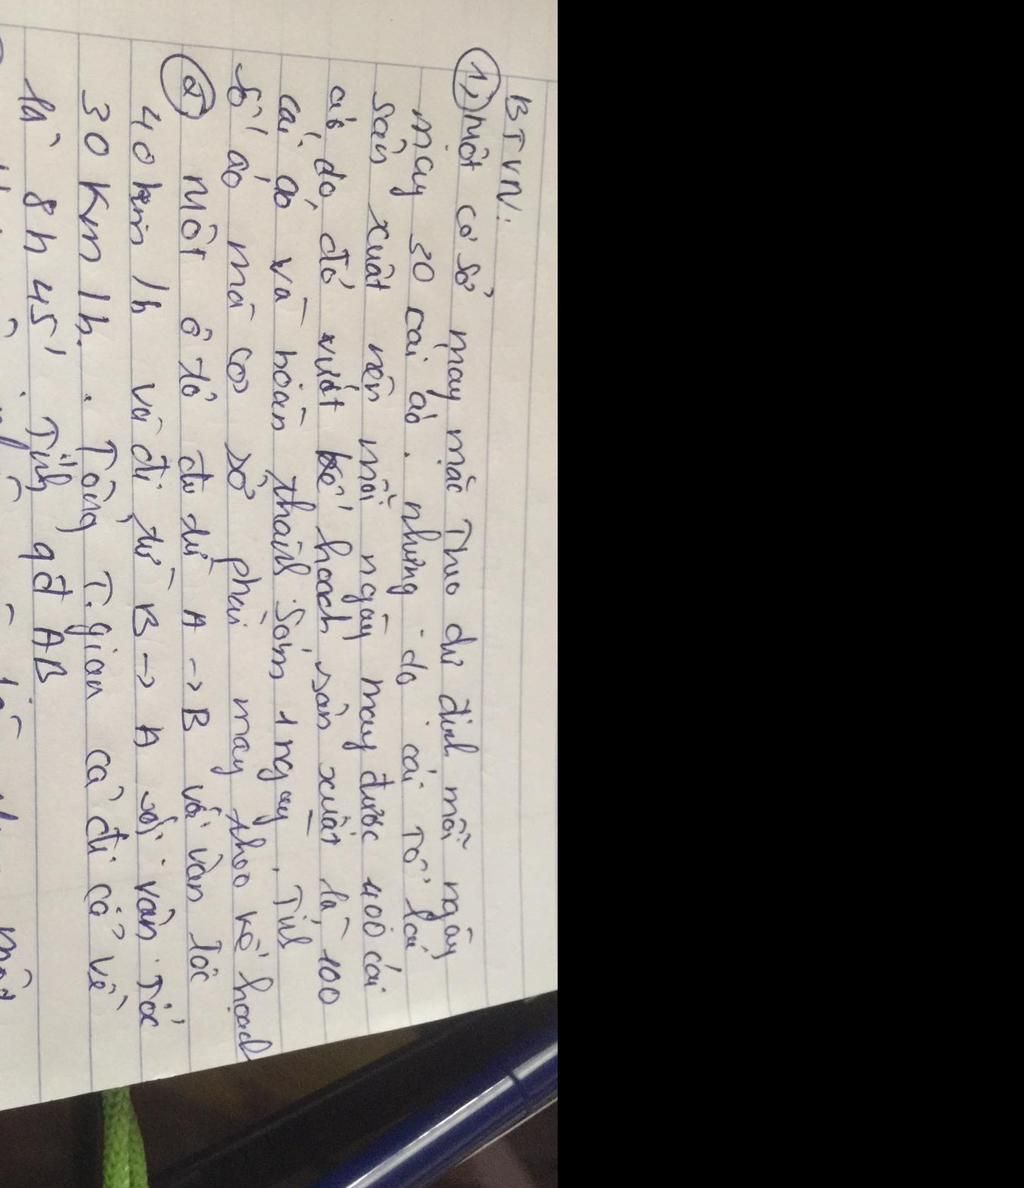 BTVN:
1, Một cơ sở may mặc Theo dự định mỗi ngày
may 30 cái áo. nhưng do cải Tổ lại
sản xuất nên mỗi ngày may được 400 cái
áo do, đó vượt kế hoạch sản xuất là 100
cái áo và hoàn thành sớm 1 ngày. Tính
số áo mà cơ sở phải may theo kế hoạch
2 một ô tô đi từ A -> B với vận tốc
40 km/h và đi từ B -> A với vận tốc
30 Km/h. Tổng T.gian cả đi cả về
là 8h45' Tính qđ AB